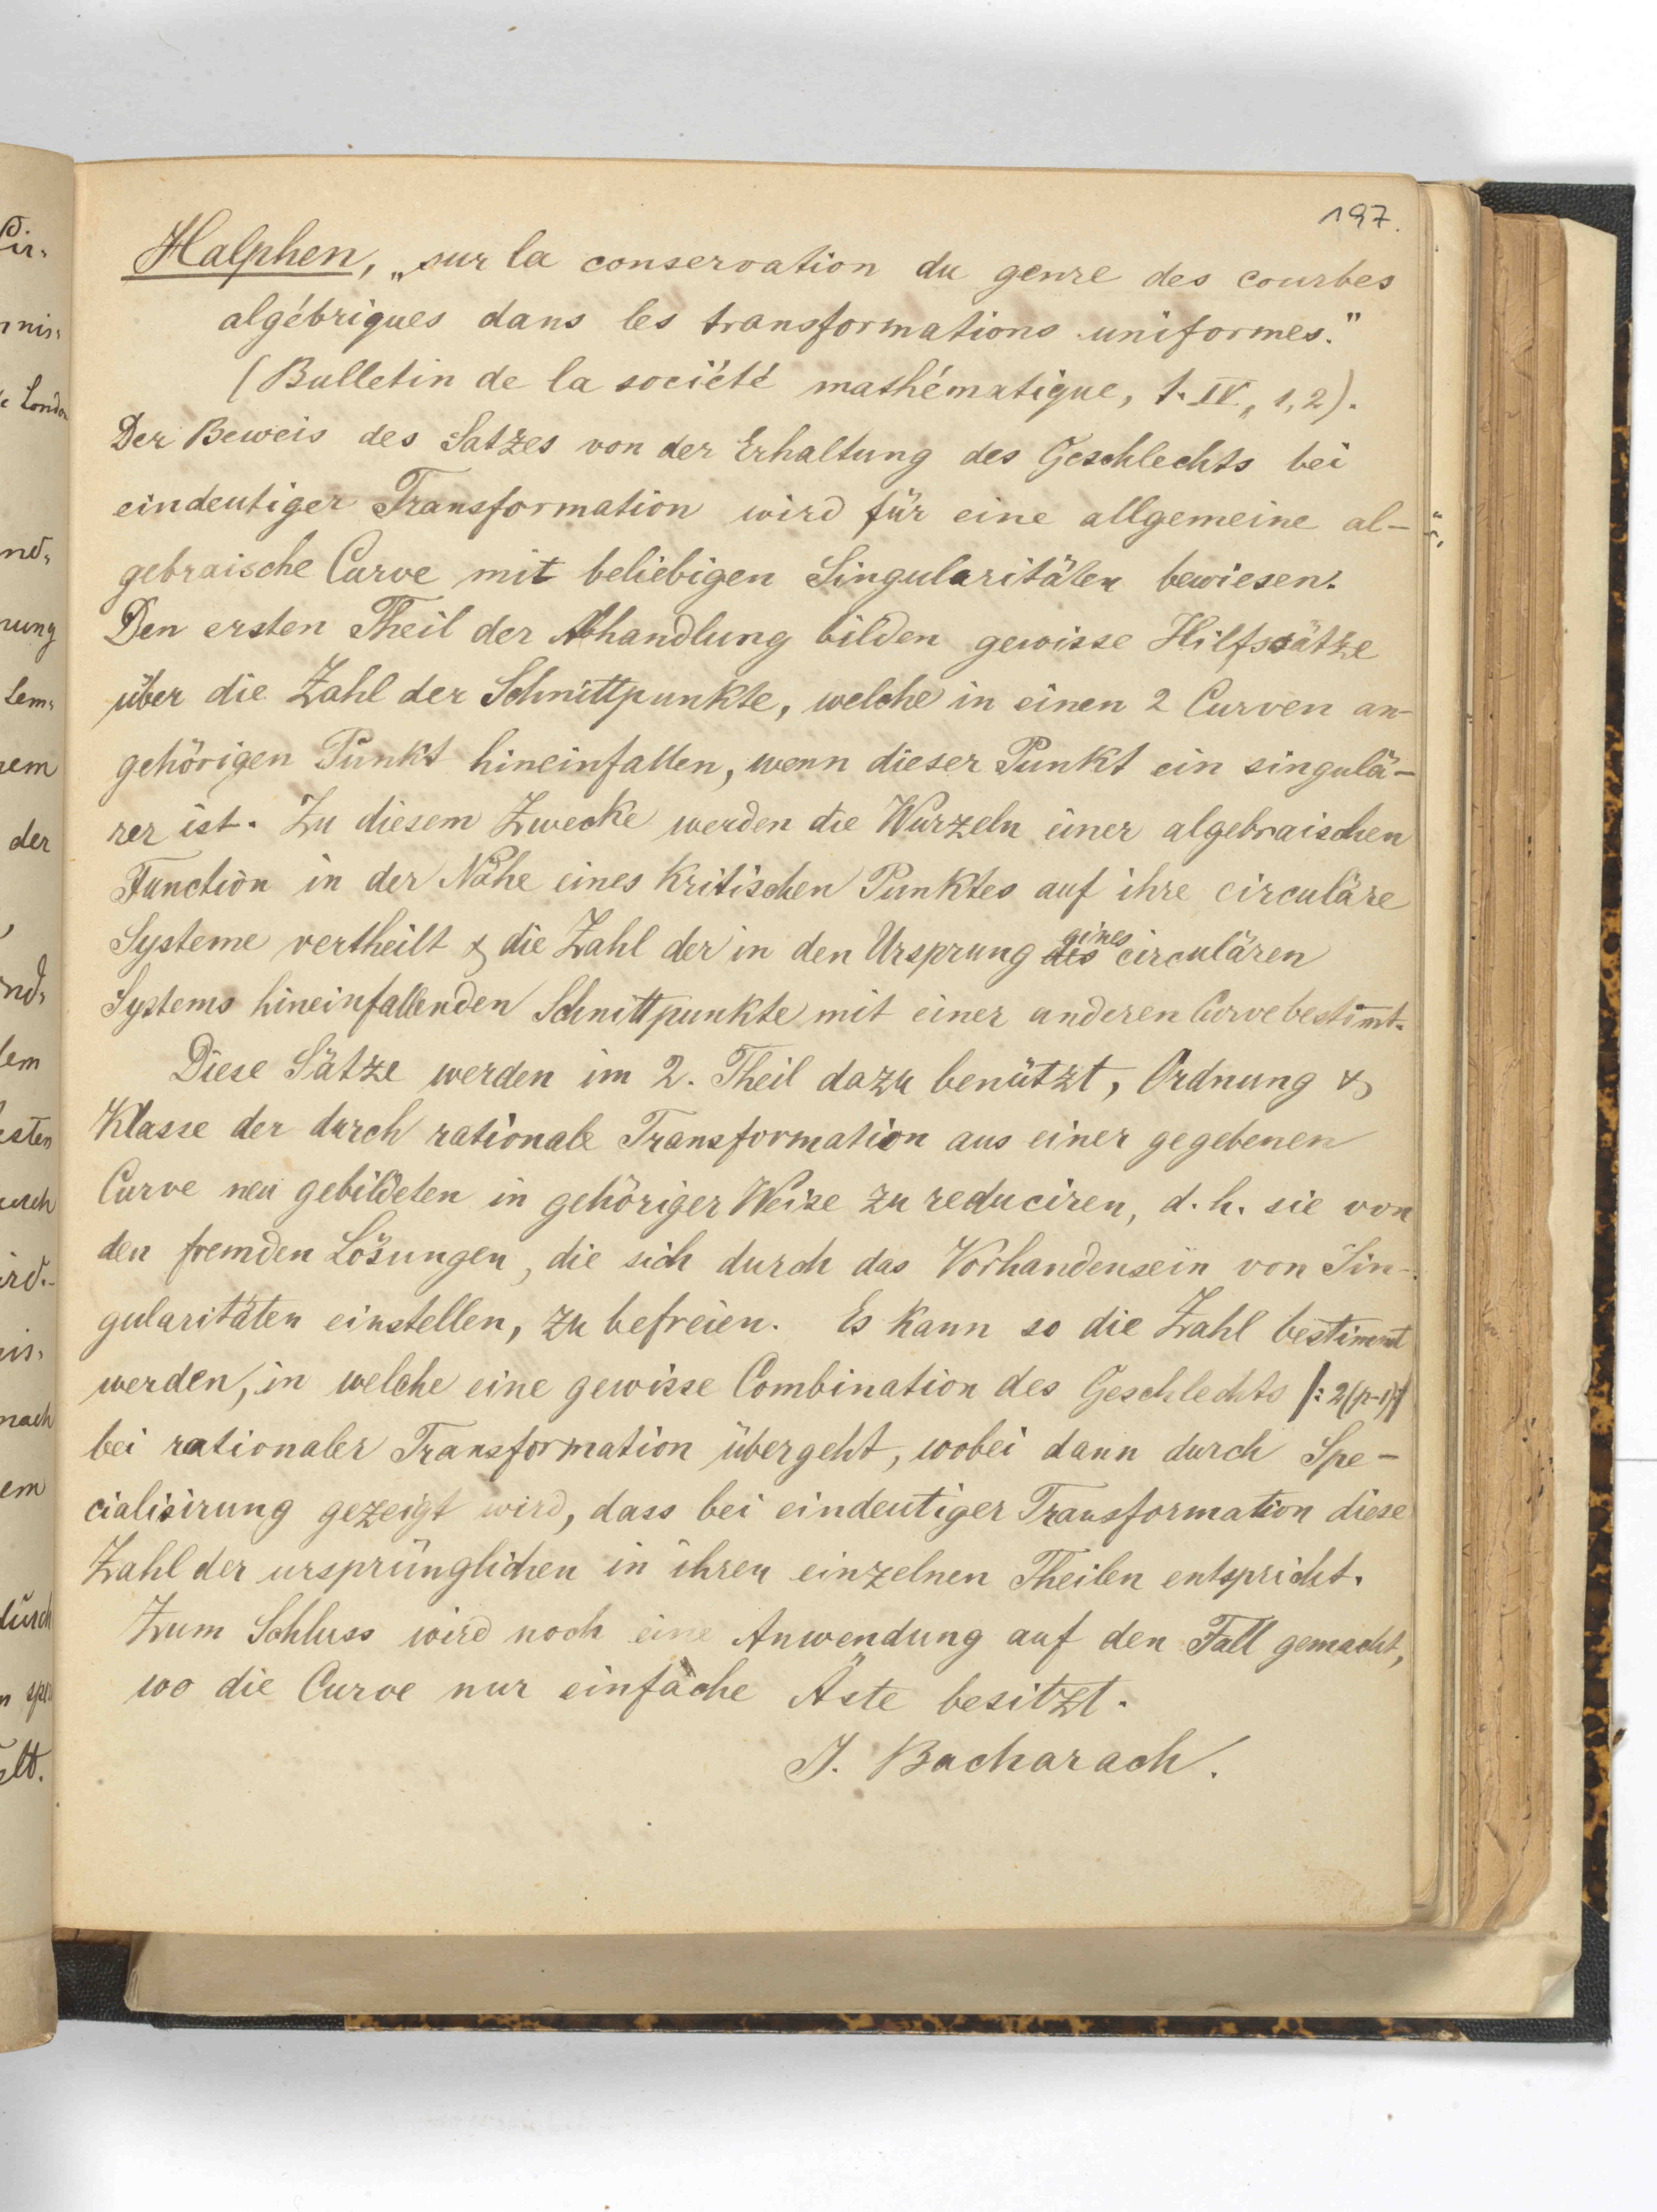 197.
Halphen, „sur la conservation du genre des courbes
algébriques dans les transformations uniformes."
(Bulletin de la société mathématique, t. IV, 1, 2).
Der Beweis des Satzes von der Erhaltung des Geschlechts bei
eindeutiger Transformation wird für eine allgemeine al-
gebraische Curve mit beliebigen Singularitäten bewiesen.
Den ersten Theil der Abhandlung bilden gewisse Hilfssätze
über die Zahl der Schnittpunkte, welche in einen 2 Curven an-
gehörigen Punkt hineinfallen, wenn dieser Punkt ein singulä-
rer ist. Zu diesem Zwecke werden die Wurzeln einer algebraischen
Function in der Nähe eines kritischen Punktes auf ihre circuläre
Systeme vertheilt & die Zahl der in den Ursprung des eines circulären
Systems hineinfallenden Schnittpunkte mit einer anderen Curve bestimt.
Diese Sätze werden im 2. Theil dazu benützt, Ordnung &
Klasse der durch rationale Transformation aus einer gegebenen
Curve neu gebildeten in gehöriger Weise zu reduciren, d. h. sie von
den fremden Lösungen, die sich durch das Vorhandensein von Sin-
gularitäten einstellen, zu befreien. Es kann so die Zahl bestimmt
werden, in welche eine gewisse Combination des Geschlechts /: 2(p-1) :/
bei rationaler Transformation übergeht, wobei dann durch Spe-
cialisirung gezeigt wird, dass bei eindeutiger Transformation diese
Zahl der ursprünglichen in ihren einzelnen Theilen entspricht.
Zum Schluss wird noch eine Anwendung auf den Fall gemacht,
wo die Curve nur einfache Äste besitzt.
J. Bacharach.